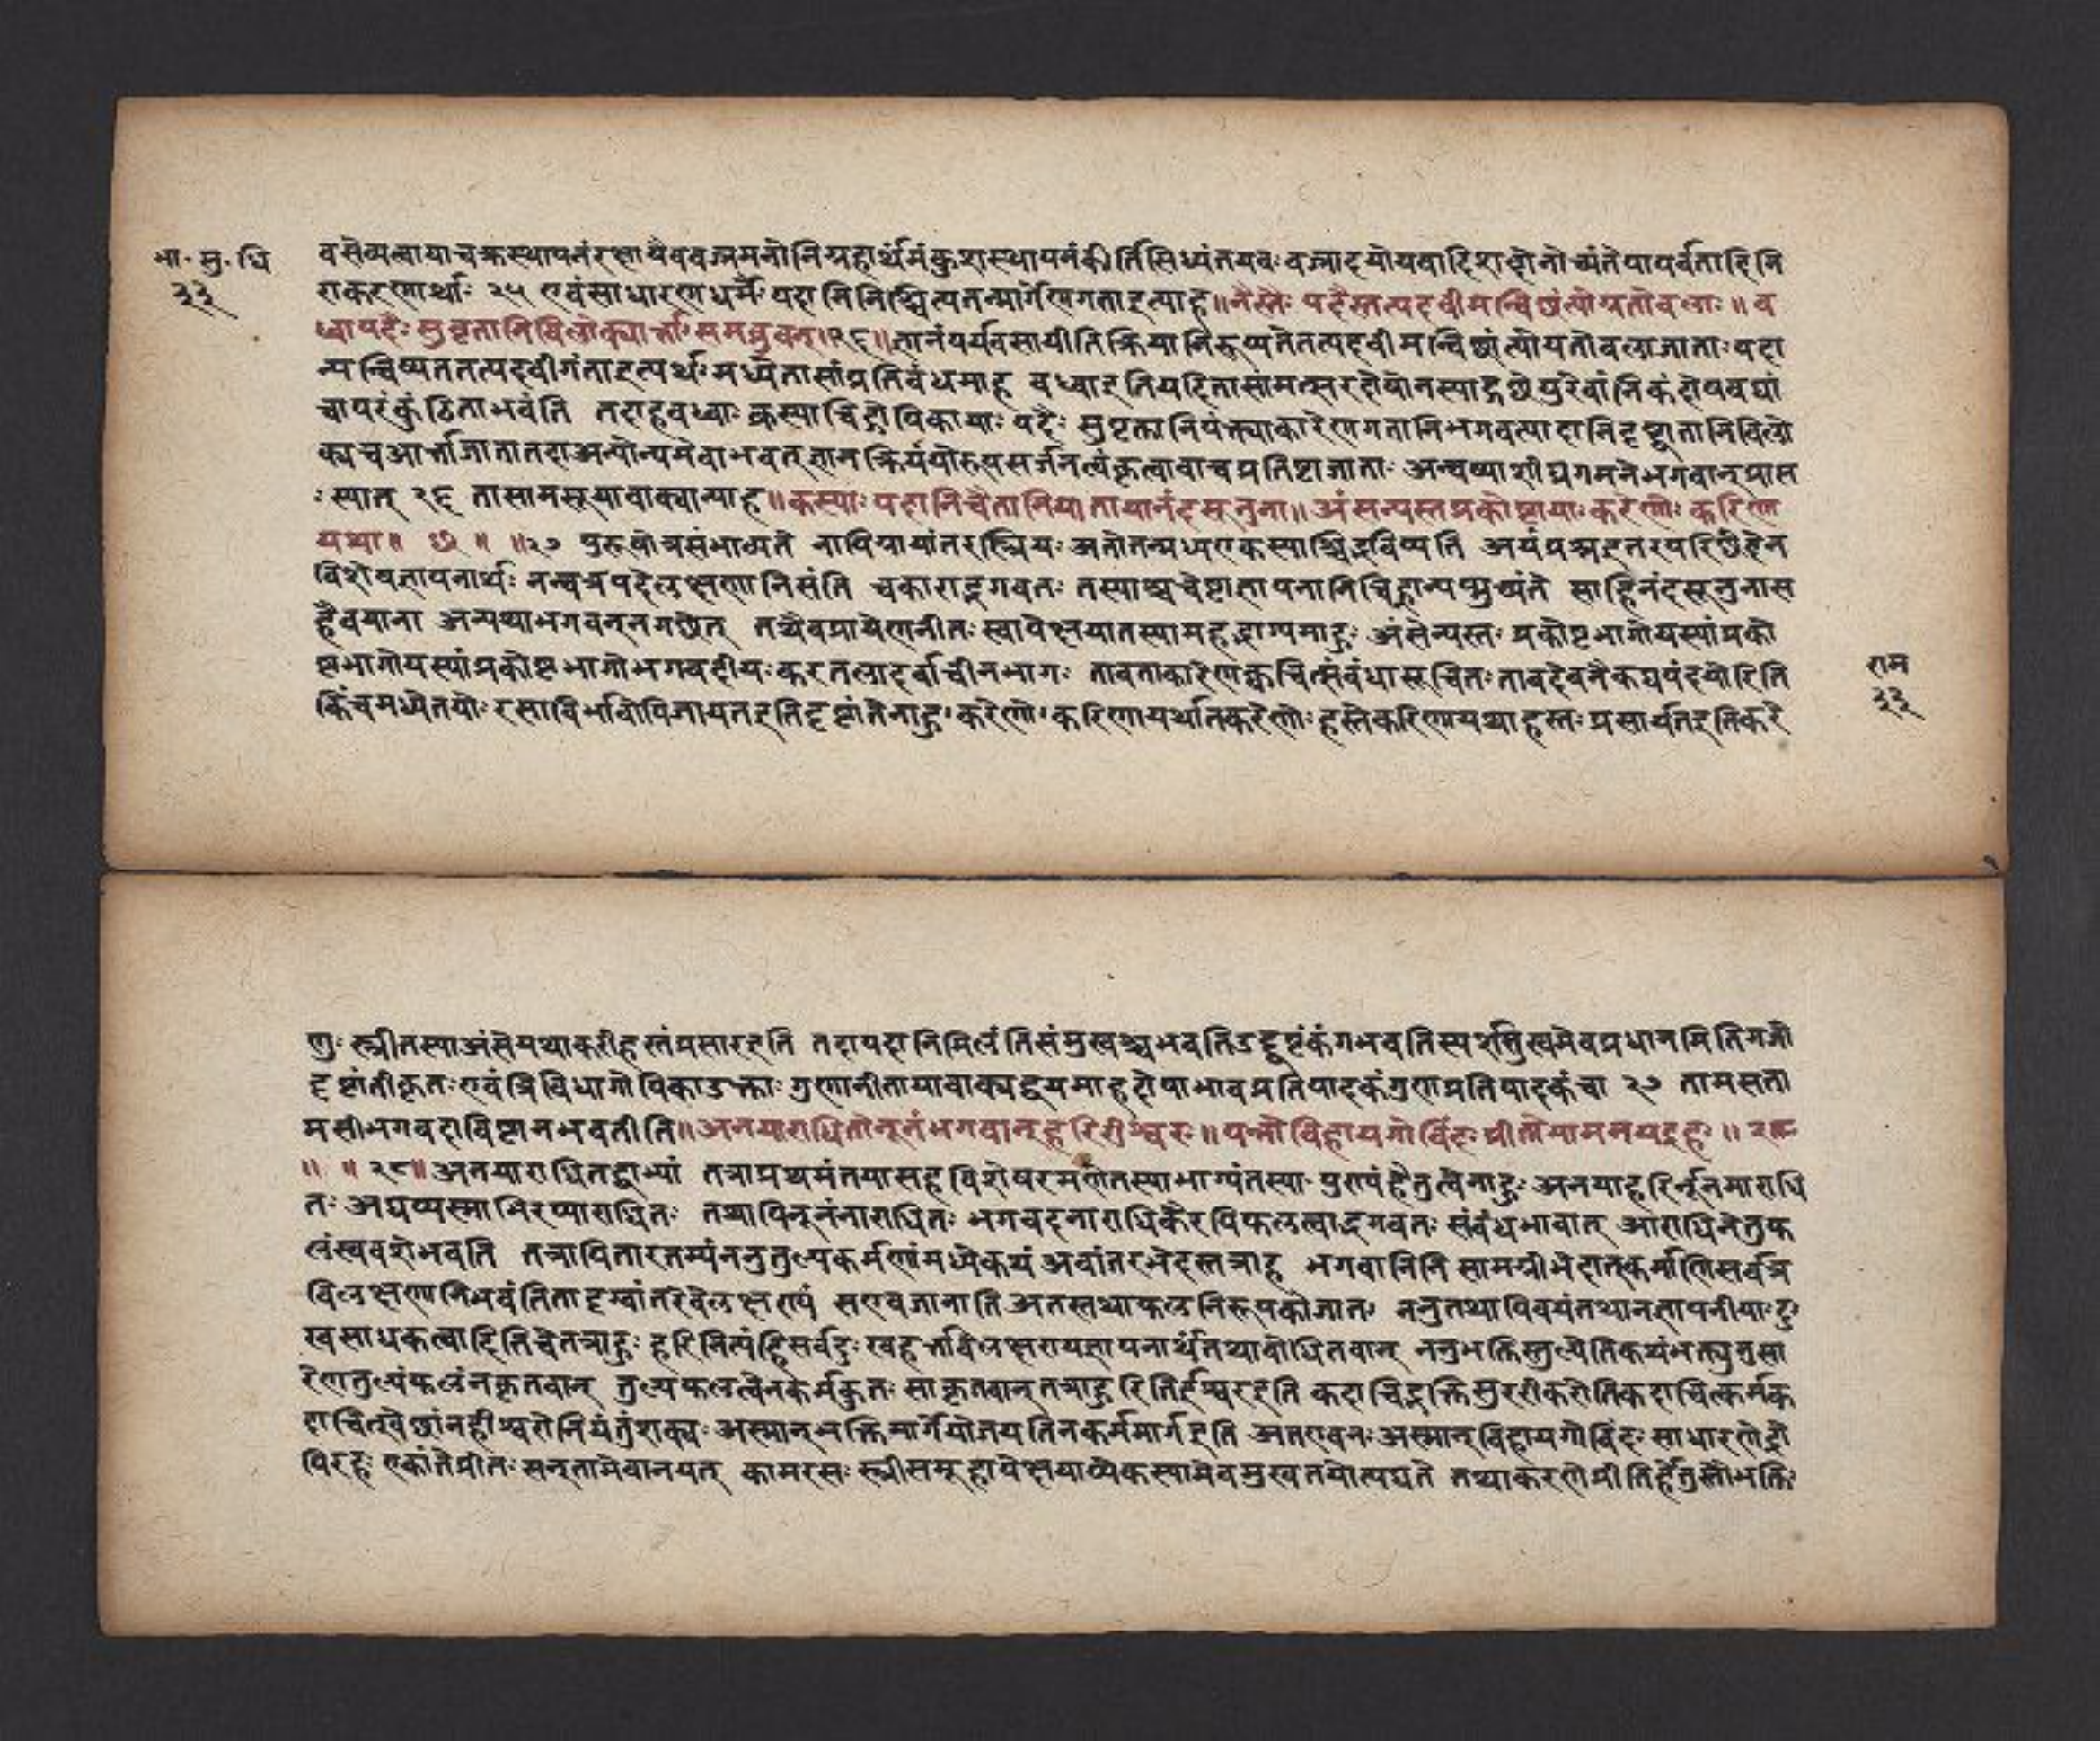 भा. सु. धि
३३
व सेव्यत्वाया चक्रस्थापनं रक्षायैव वज्रमनोनिग्रहार्थमंकुशस्थापनं कीर्तिसिध्यंतयवः वज्रादयो यवादिशद्बेनोच्यंते पापपर्वतादिनि
राकरणार्थाः २५ एवं साधारणधर्मैः पदानि निश्चित्य तन्मार्गेण गता इत्याह ॥ तैस्तैः पदैस्तत्पदवीमन्विछंत्योग्रतोबलाः ॥ व
ध्वाः पदैः सुपृक्तानि विलोक्यार्त्ताः समब्रुवन् ॥२६॥ ज्ञानं पर्यवसायीति क्रिया निरूप्यते तत्पदवीमन्विछंत्योग्रतोबला जाताः यदा
न्यन्विष्यत तत्पदवीं गंता इत्यर्थः मध्ये तासां प्रतिबंधमाह वध्वा इति यदि तासां मत्सरदोषो न स्याद्गछेयुरेवांतिकं दोषवद्यां
चापरं कुंठिता भवंति तदाह वध्वाः कस्याचिद्गोपिकायाः पदैः सुपृक्तानि पंक्त्याकारेण गतानि भगवत्पादानि दृष्ट्वा तानि विलो
क्य च आर्त्ता जाता तदा अन्योन्यमेवाभवत् ज्ञानक्रिययोरुपसर्जनत्वं कृत्वा वाच प्रतिष्टा जाताः अन्वय्याशीघ्रगमने भगवान् प्राप्त
ः स्यात् २६ तासामसूयावाक्यान्याह ॥ कस्याः पदानि चैतानि याताया नंदसूनुना ॥ अंसन्यस्तप्रकोष्टायाः करेणोः करिणा
यथा ॥ छ ॥ ॥२७ पुरुषोत्र संभाव्यते नापि यायांतरस्त्रियः अतोतन्मध्य एकस्याश्चिद्भविष्यति अयं प्रश्न इतरपरिछेदेन
विशेषज्ञापनार्थः नन्वत्र पदे लक्षणानि संति चकाराद्भगवतः तस्याश्च चेष्टाज्ञापनानि चिह्नान्यप्युच्यंते सा हि नंदसूनुना स
हैव याना अन्यथा भगवन् नगछेत् तत्रैव प्रायेण नीतः स्वापेक्षया तस्या महद्भाग्यमाहुः अंसेन्यस्तः प्रकोष्टभागो यस्यां प्रको
ष्टभागो यस्यां प्रकोष्टभागो भगवदीयः करतलादर्वाचीनभागः तावताकारेण क्वचित्संबंधा सूचितः तावदेव नैकट्यपंदयोरिति
किंच मध्ये तयोः रसाविर्भावोपि जायत इति दृष्टांतेनाहुः करेणोः करिणा यथा तकरेणोः हस्ते करिणा यथा हस्तः प्रसार्यत इति करे
राम
३३
णुः स्त्री तस्या अंसे यथा करी हस्तं प्रसारइति तदा पदानि मिलंति संमुखश्च भवति उद्घृष्टं कंगभवति स्पर्शसुखमेव प्रधानमिति गजो
दृष्टांतीकृतः एवं त्रिविधा गोपिका उक्ताः गुणातीताया वाक्यद्वयमाह दोषाभावप्रतिपादकं गुणप्रतिपादकं चा २७ तामसता
मसी भगवदाविष्टा न भवतीति ॥ अनयाराधितो नूनं भगवान् हरिरीश्वरः ॥ यन्नो विहाय गोविंदः प्रीतो यामनयद्रहः ॥ २८
॥ ॥ २८॥ अनयाराधित द्वाभ्यां तत्रा प्रथमं तया सह विशेषरमणे तस्या भाग्यं तस्याः पुण्यं हैतुत्वेनाहुः अनया हरिर्नूनमाराधि
तः अद्यप्यस्माभिरप्याराधितः तथापि नूनं नाराधितः भगवदनाराधिकैरविफलत्वाद्भगवतः संबंधभावात् आराधिनेतुफ
लं स्ववशे भवति तत्रापि तारतम्यं ननु तुल्यकर्मणां मध्ये कथं अवांतरभेदस्तत्राह भगवानिति सामग्रीभेदात्कर्माणि सर्वत्र
विलक्षणानि भवंति तादृग्वांतरवैलक्षण्यं स एव जानाति अतस्तथा फलनिरूपको जातः ननु तथापि वयं तथा न ज्ञापनीयाः दुः
खसाधकत्वादिति चेतत्राहुः हरिमित्यंहि सर्वदुःखहर्त्ता विलक्षण्यज्ञापनार्थं तथा बोधितवान् ननु भक्तिस्तुल्येति कथं भक्त्यनुसा
रेण तुल्यं फलं न कृतवान् तुल्यफलत्वेन कर्म कुतः सा कृतवान् तत्राहुरिति ईश्वर इति कदाचिद्भक्तिमुररीकरोति कदाचित्कर्म क
दाचित्स्वेछां न हीश्वरो नियंतुं शक्यः अस्मान् भक्तिमार्गे योजयति न कर्ममार्ग इति अत एव नः अस्मान् विहाय गोविंदः साधारणेंद्रो
पिरहः एकांते प्रीतः सन् तामेवानयत् कामरसः स्त्रीसमूहापेक्षयाप्येकस्यामेव मुखतयोत्पद्यते तथाकरणे प्रीतिर्हेतुस्तौ भक्तिः